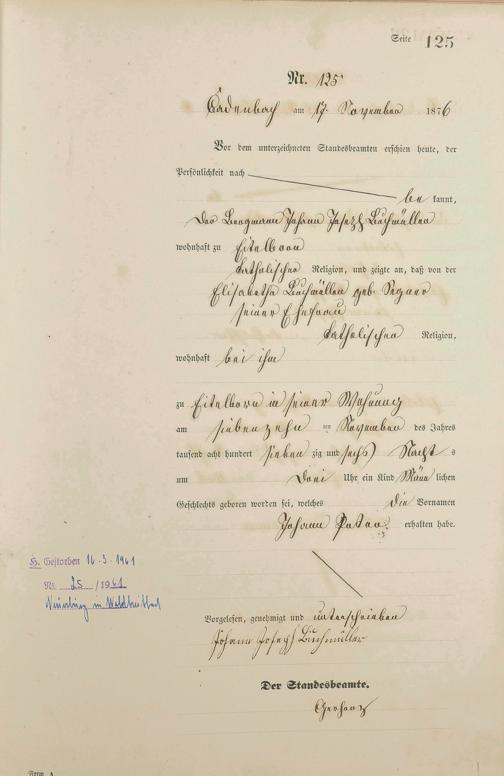 Seite 125
Nr. 125
Cadenbach am 17. November 1876
Vor dem unterzeichneten Standesbeamten erschien heute, der
Persönlichkeit nach
bekannt,
der Bergmann Johann Joseph Buchmüller
wohnhaft zu Eitelborn
katholischer Religion, und zeigte an, daß von der
Elisabetha Buchmüller geb. Segner
seiner Ehefrau
katholischer Religion,
wohnhaft bei ihm
zu Eitelborn in seiner Wohnung
am siebenzehn ten November des Jahres
tausend acht hundert sieben zig und sechs Nachts
um Drei Uhr ein Kind Männlichen
Geschlechts geboren worden sei, welches die Vornamen
Johann Peter erhalten habe.
H. Gestorben 16.3.1961
Nr. 25/1961
Vorgelesen, genehmigt und unterschrieben
Johann Joseph Buchmüller
Der Standesbeamte.
Gerharz
Form. A